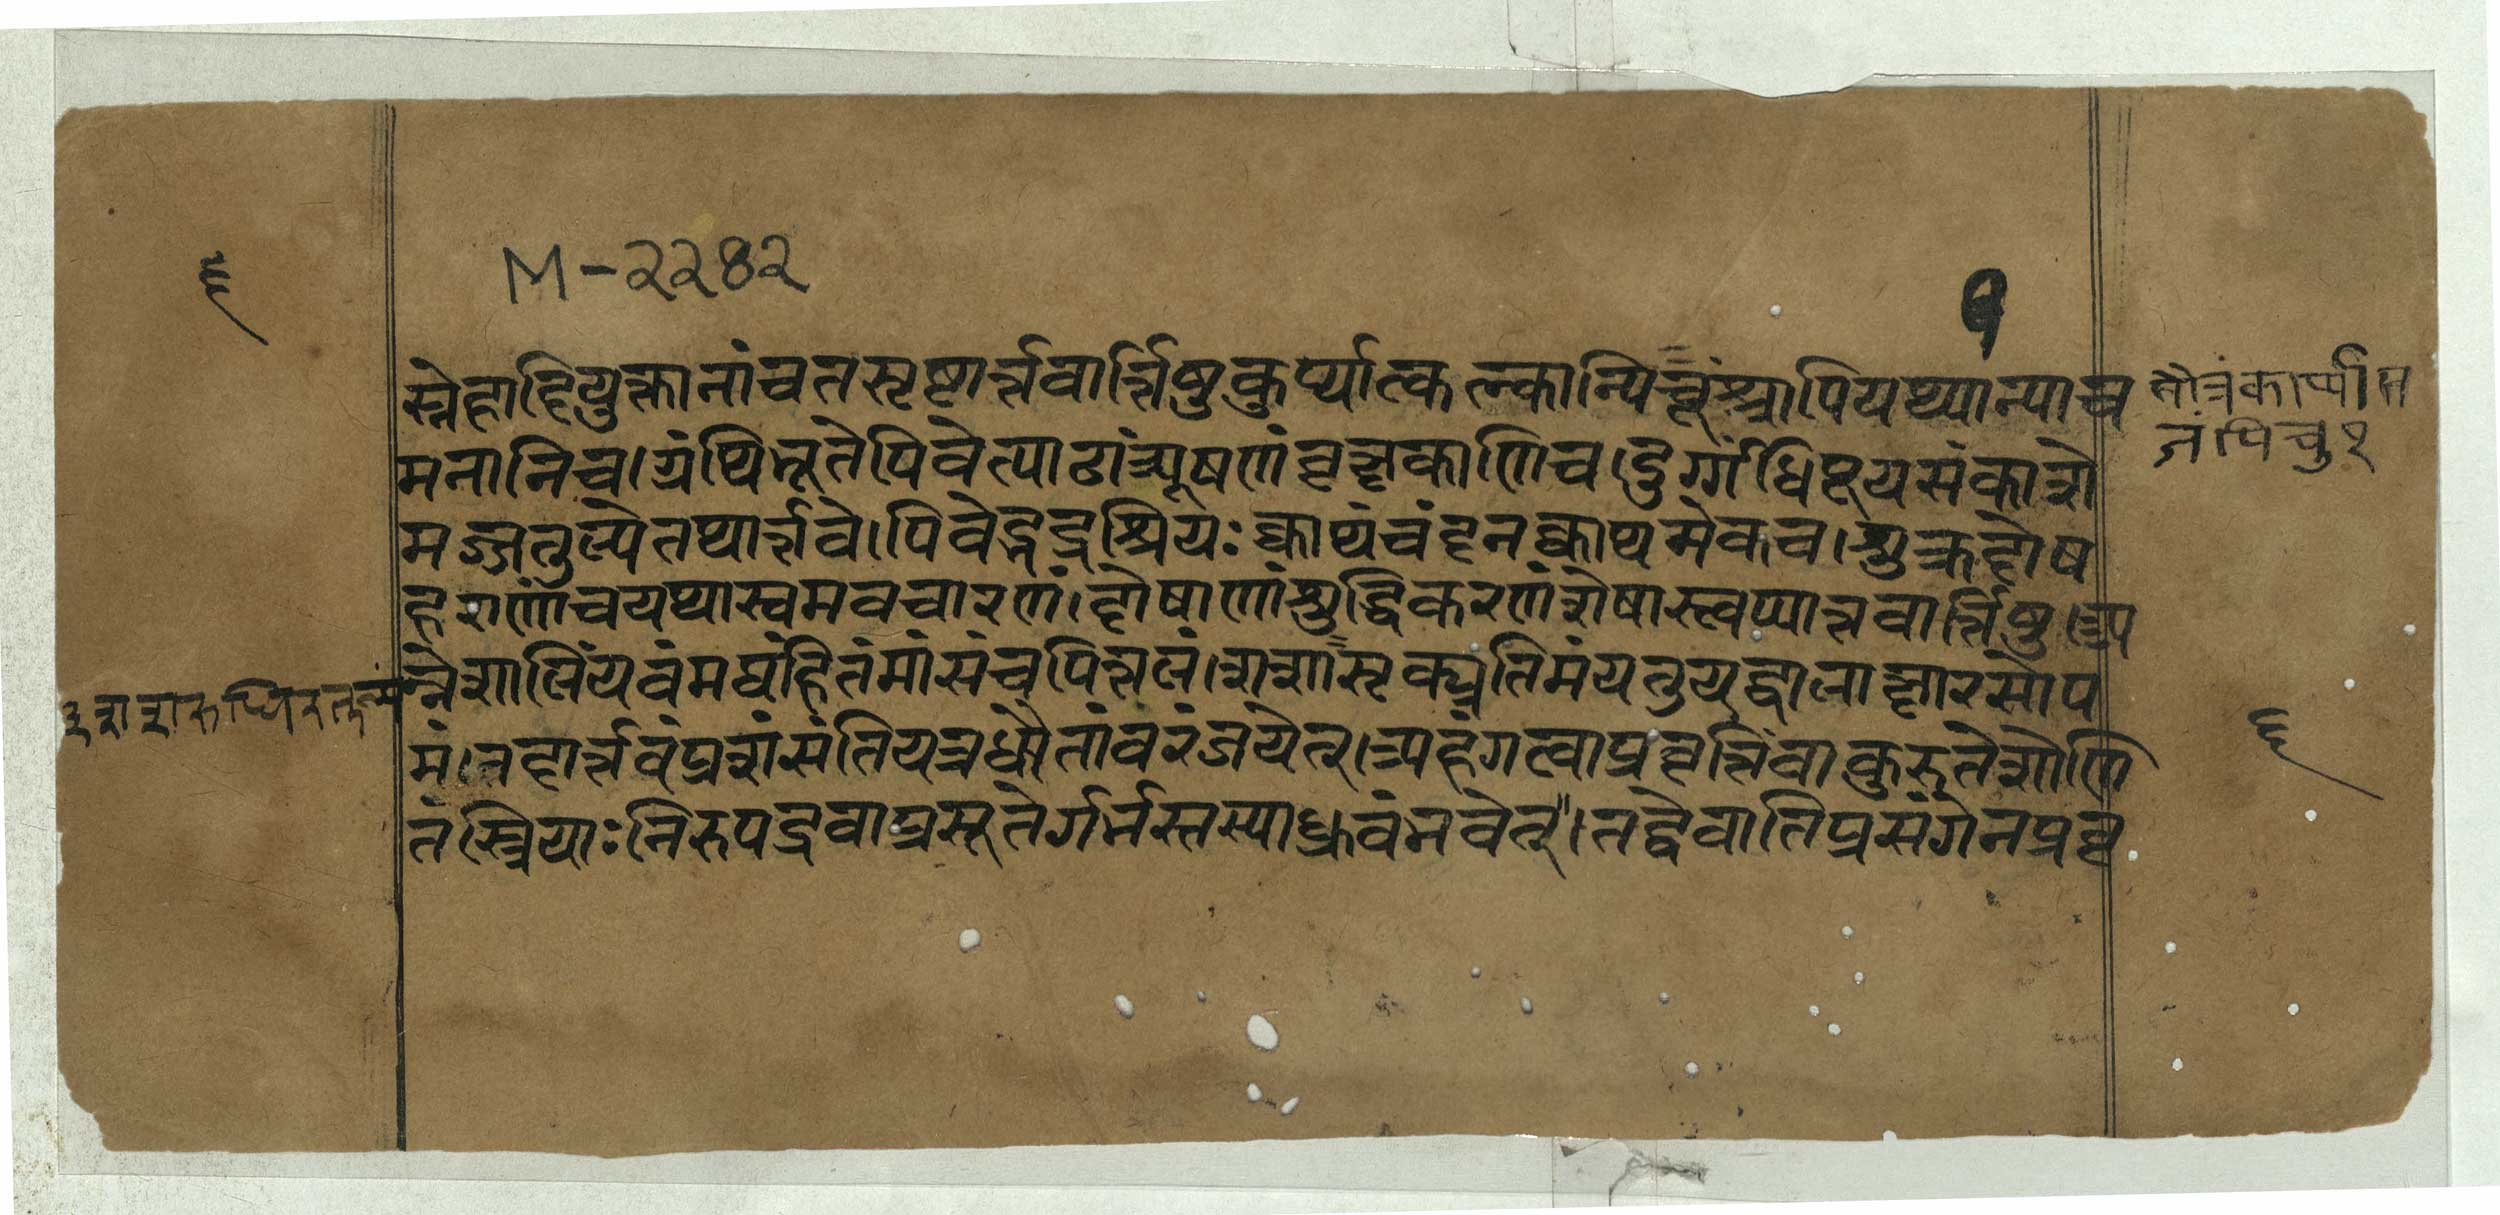 ६
M-२२४२
१
स्नेहादियुक्तानांचतसृष्वार्त्तवार्त्तिषुकुर्य्यात्कल्कान्पिचूंश्चापिपथ्यान्याच
तौत्रंकार्प्पास
जंपिचु१
मनानिच।ग्रंथिभूतेपिवेत्पाठांत्र्यूषणंवृक्षकाणिच।दुर्गंधिपूयसंकाशे
मज्जतुल्येतथार्त्तवे।पिवेद्भद्रश्रियःक्वाथंचंदनक्वाथमेवच।शुक्रदोष
हराणांचयथास्वमवचारणं।दोषाणांशुद्धिकरणंशेषास्वप्यार्त्तवार्त्तिषु।अ
न्नंशालिंयवंमद्यंहितंमांसंचपित्तलं।शशासृक्प्रतिमंयत्तुयद्वालाक्षारसोप
मं।तदार्त्तवंप्रशंसंतियत्रधौतांवरंजयेत्।अहंगत्वाप्रवृत्तिंवाकुरुतेशोणि
६
तंस्त्रियाःनिरुपद्रवाप्रसूतेर्गर्भस्तस्याध्रुवंभवेत्"।तद्वेवातिप्रसंगेनप्रवृ